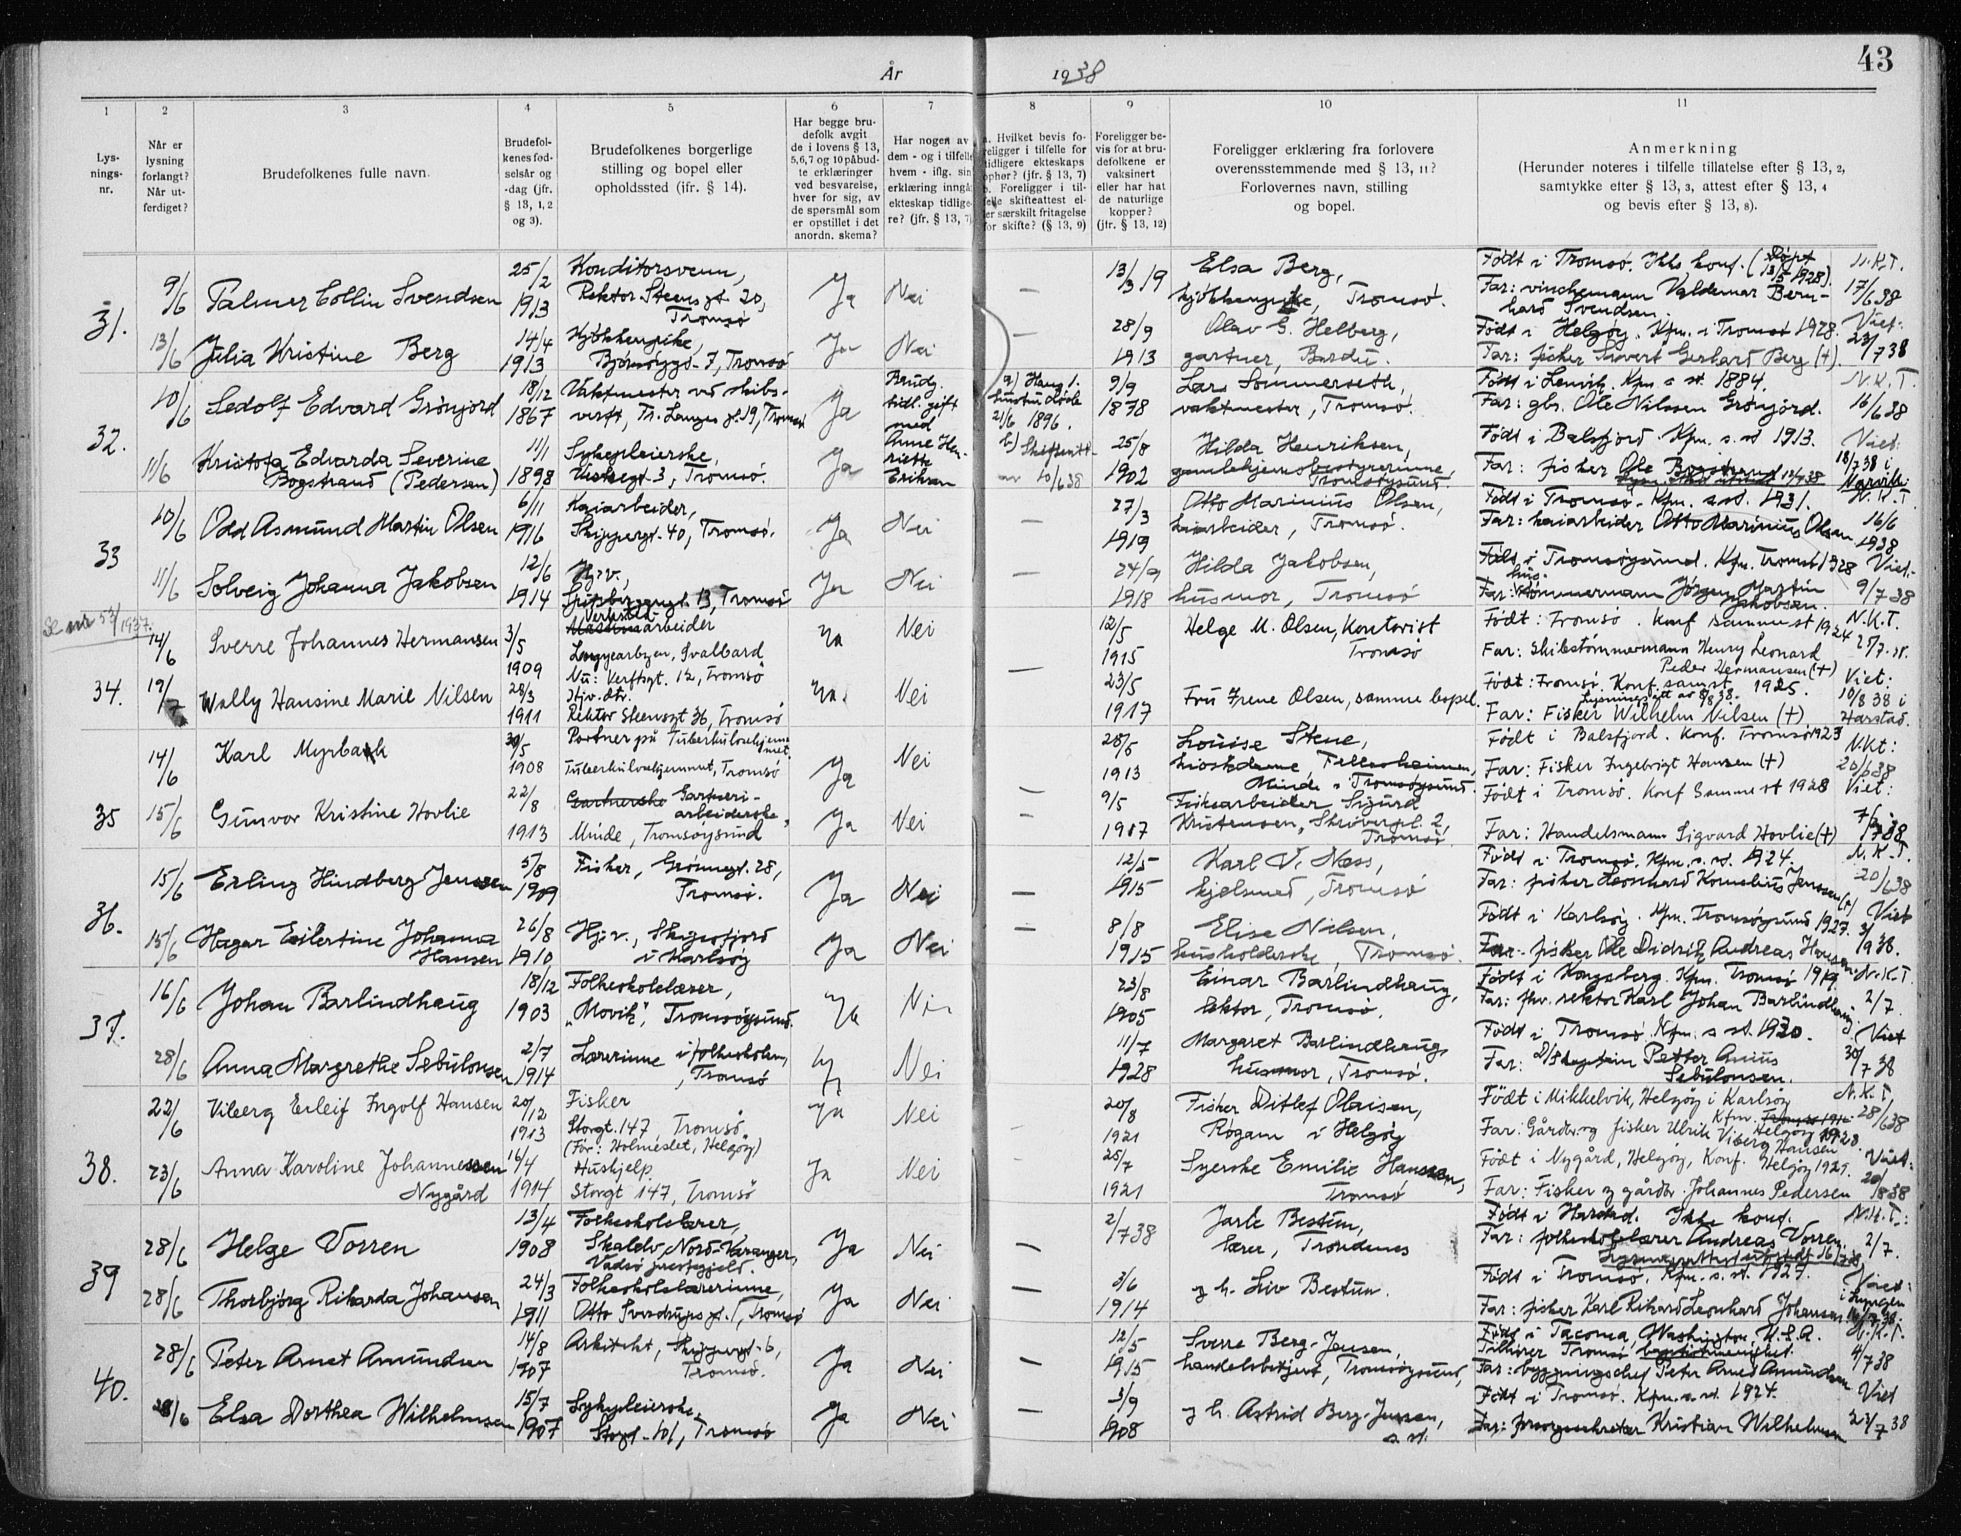 År 1938
43
1 2 3 4 5 6 7 8 9 10 11
Lys-
nings-
nr.
Når er
lysning
forlangt?
Når ut-
ferdiget?
Brudefolkenes fulle navn.
Brudefol-
kenes fød-
selsår og
-dag (jfr.
§ 13, 1, 2
og 3).
Brudefolkenes borgerlige
stilling og bopel eller
opholdssted (jfr. § 14).
Har begge bru-
defolk avgit
de i lovens § 13,
5,6,7 og 10 påbud-
te erklæringer
ved besvarelse,
hver for sig, av
de spørsmål som
er opstillet i det
anordn. skema?
Har nogen av
dem - og i tilfelle
hvem - iflg. sin
erklæring inngå
ekteskap tidlige-
re? (jfr. § 13, 7)
a. Hvilket bevis fo-
religger i tilfelle for
tidligere ekteskaps
ophør? (jfr. § 13, 7)
b. Foreligger i til-
felle skifteattest el-
ler særskilt fritagelse
for skifte? (§ 13, 9)
Foreligger be-
vis for at bru-
defolkene er
vaksinert
eller har hat
de naturlige
kopper?
(jfr. § 13, 12)
Foreligger erklæring fra forlovere
overensstemmende med § 13, 11?
Forlovernes navn, stilling
og bopel.
Anmerkning
(Herunder noteres i tilfelle tillatelse efter § 13, 2,
samtykke efter § 13, 3, attest efter § 13, 4
og bevis efter § 13, 8).
31.
9/6 Palmer Collin Svendsen 25/2 1913 Konditorsvenn,
Rektor Steens gt. 20,
Tromsø
Ja Nei — 13/3 19 Elsa Berg,
kjøkkenpike, Tromsø.
Født i Tromsø. Ikke konf. (Døpt 13/5 1928).
Far: vinchemann Valdemar Bern-
hard Svendsen.
N.K.T. 17/6 38
13/6 Julia Kristine Berg 14/4 1913 Kjøkkenpike,
Bjørnøygt. 7, Tromsø
Ja Nei — 28/9 1913 Olav G. Helberg,
gartner, Bardu.
Født i Helgøy. Kfm. i Tromsø 1928.
Far: fisker Sivert Gerhard Berg (+).
Viet: 23/7 38
32.
10/6 Sedolf Edvard Grønjord 18/12 1867 Vaktmester ved skibs-
verft, Tromsø
Ja Brudg.
tidl. gift
med
Anne Hen-
riette
Eriksen
a) Haug s.
hustru døde
21/6 1896.
b) Skifteatt-
av 10/6 38
9/9 1878 Lars Sommerseth,
vaktmester, Tromsø.
Født i Lenvik. Kfm. s. st. 1884.
Far: gbr. Ole Nilssen Grønjord.
N.K.T. 16/6 38
11/6 Kristofa Edvarda Severine
Bogstrand (Pedersen)
11/1 1898 Sykepleierske,
Vestregt. 3, Tromsø.
Ja 25/8 1902 Hilda Henriksen,
gamlehjemsbestyrerinne,
Tromsøysund.
Født i Balsfjord. Kfm. s. st. 1913.
Far: fisker Ole Bogstrand
Viet: 18/7 38 i
Narvik.
33
10/6 Odd Asmund Martin Olsen 6/11 1916 Kaiarbeider,
Skippergt. 40, Tromsø.
Ja Nei — 27/3 1919 Otto Marinius Olsen,
kaiarbeider, Tromsø.
Født i Tromsø. Kfm. s. st. 1931.
Far: kaiarbeider Otto Marinius Olsen
N.K.T. 16/6 1938
11/6 Solveig Johanna Jakobsen 12/6 1914 Hjv.,
Spitsbergengt. 13, Tromsø
Ja Nei — 24/9 1918 Hilda Jakobsen,
husmor, Tromsø
Født i Tromsøysund. Kfm. Tromsø 1928
Far: hustømmermann Jørgen Martin
Jakobsen.
Viet: 9/7 38
Se nr 53/1937.
34.
14/6 Sverre Johannes Hermansen 3/5 1909 Verksted
arbeider
Longyearbyen, Svalbard
Nu: Verftsgt. 12, Tromsø
Ja Nei 12/5 1915 Helge M. Olsen, Kontorist
Tromsø
Født: Tromsø. Konf samme st 1924
Far: Skibstømmermann Henry Leonard
Peder Hermansen (+)
N.K.T. 25/7 38.
19/7 Wally Hansine Marie Nilsen 28/3 1911 Hjv. dtr.
Rektor Steensgt 36, Tromsø
Ja. Nei — 23/5 1917 Fru Irene Olsen, samme bopel.
Født: Tromsø. Konf. samst. 1925.
Far: Fisker Wilhelm Nilsen (+)
Viet: 10/8 38 i
Harstad.
35
14/6 Karl Myrbakk 30/5 1908 Portner på Tuberkulosehjem-
met
Tuberkulosehjemmet, Tromsø
Ja Nei 28/5 1913 Louise Stene,
kioskdame, Fellesheimen,
Minde i Tromsøysund.
Født i Balsfjord. Konf. Tromsø 1923
Far: Fisker Ingebrigt Hansen (+)
N.Kt: 20/6 38
15/6 Gunvor Kristine Hovlie 22/8 1913 Gartnerske Gartneri-
arbeiderske,
Minde, Tromsøysund
Ja Nei — 9/5 1917 Fiskearbeider Sigurd
Kristensen, Skrivergt. 2,
Tromsø
Født i Tromsø. Konf Samme st 1928
Far: Handelsmann Sigvard Hovlie (+)
Viet: 7/7 38
36.
15/6 Erling Hindberg Jenssen 5/8 1909 Fisker, Grønnegt. 28,
Tromsø.
Ja Nei — 12/5 1915 Karl V. Næss,
kjelsmed, Tromsø
Født i Tromsø. Kfm. s. st. 1924.
Far: fisker Leonhard Kornelius Jenssen (+)
N.K.T. 20/6 38
15/6 Hagar Eilertine Johanna
Hansen
26/8 1910 Hjv., Skogsfjord
i Karlsøy
Ja Nei — 8/8 1915 Elise Nilsen,
husholderske, Tromsø.
Født i Karlsøy. Kfm. Tromsøysund 1927.
Far: fisker Ole Didrik Andreas Hansen
Viet
37.
16/6 Johan Barlindhaug 18/12 1903 Folkeskolelærer,
"Movik", Tromsøysund.
Ja Nei 23/8 1905 Einar Barlindhaug,
lektor, Tromsø.
Født i Kongsberg. Kfm. Tromsø 1919.
Far: fhv. rektor Karl Johan Barlindhaug.
N.K.T. 2/7
28/6 Anna Margrethe Sebulonsen 2/7 1914 Lærerinne i folkeskolen,
Tromsø
Ja Nei 11/7 1928 Margaret Barlindhaug
husmor, Tromsø.
Født i Tromsø. Kfm. s st. 1930.
Far: D/Skaptein Petter Anius
Sebulonsen.
Viet 30/7 38
38.
22/6 Viberg Erleif Ingolf Hansen 20/12 1913 Fisker
Storgt. 147, Tromsø
(Før: Holmeslet, Helgøy)
Ja Nei 20/8 1921 Fisker Ditlef Olaisen,
Rogam i Helgøy
Født i Mikkelvik, Helgøy i Karlsøy
Kfm. Helgøy 1928.
Far: Gårdbr. og fisker Ulrik Viberg Hansen
N.K.T. 28/6 38
23/6 Anna Karoline Johannessen
Nygård
16/4 1914 Hushjelp
Storgt 147, Tromsø
Ja Nei 25/7 1921 Syerske Emilie Hanssen,
Tromsø
Født i Nygård, Helgøy, Konf. Helgøy 1929.
Far: Fisker og gårdbr. Johannes Pedersen
Viet: 20/8 38
39
28/6 Helge Vorren 13/4 1908 Folkeskolelærer,
Skalelv, Nord-Varanger,
Vadsø prestegjeld.
Ja Nei — 2/7 38 Jarle Bestun,
lærer, Trondenes
Født i Harstad. Ikke konf.
Far: folkeskolelærer Andreas Vorren
N.K.T.: 2/7.
28/6 Thorbjørg Rikarda Johansen 24/3 1911 Folkeskolelærerinne,
Otto Sverdrups gt. 1, Tromsø
Ja Nei — 3/6 1914 og h. Liv Bestun.
Født i Tromsø. Kfm. s. st. 1927.
Far: fisker Karl Rikard Leonhard Johansen
Viet:
i Lyngen
40.
28/6 Peter Arnet Amundsen 14/8 1907 Arkitekt, Skippergt. 6,
Tromsø.
Ja Nei — 12/5 1915 Sverre Berg-Jensen,
handelsbetjent, Tromsøysund,
Født i Tacoma, Washington, U.S.A.
Tilhører Tromsø baptistmenighet.
Far: bygningschef Peter Arnet Amundsen
N.K.T. 4/7 38
28/6 Elsa Dorthea Wilhelmsen 15/7 1907 Sykepleierske,
Storgt. 101, Tromsø
Ja Nei — 3/9 1908 og h. Astrid Berg-Jensen,
s. st.
Født i Tromsø. Kfm. s. st. 1924.
Far: Kristian Wilhelmsen
Viet 23/7 38